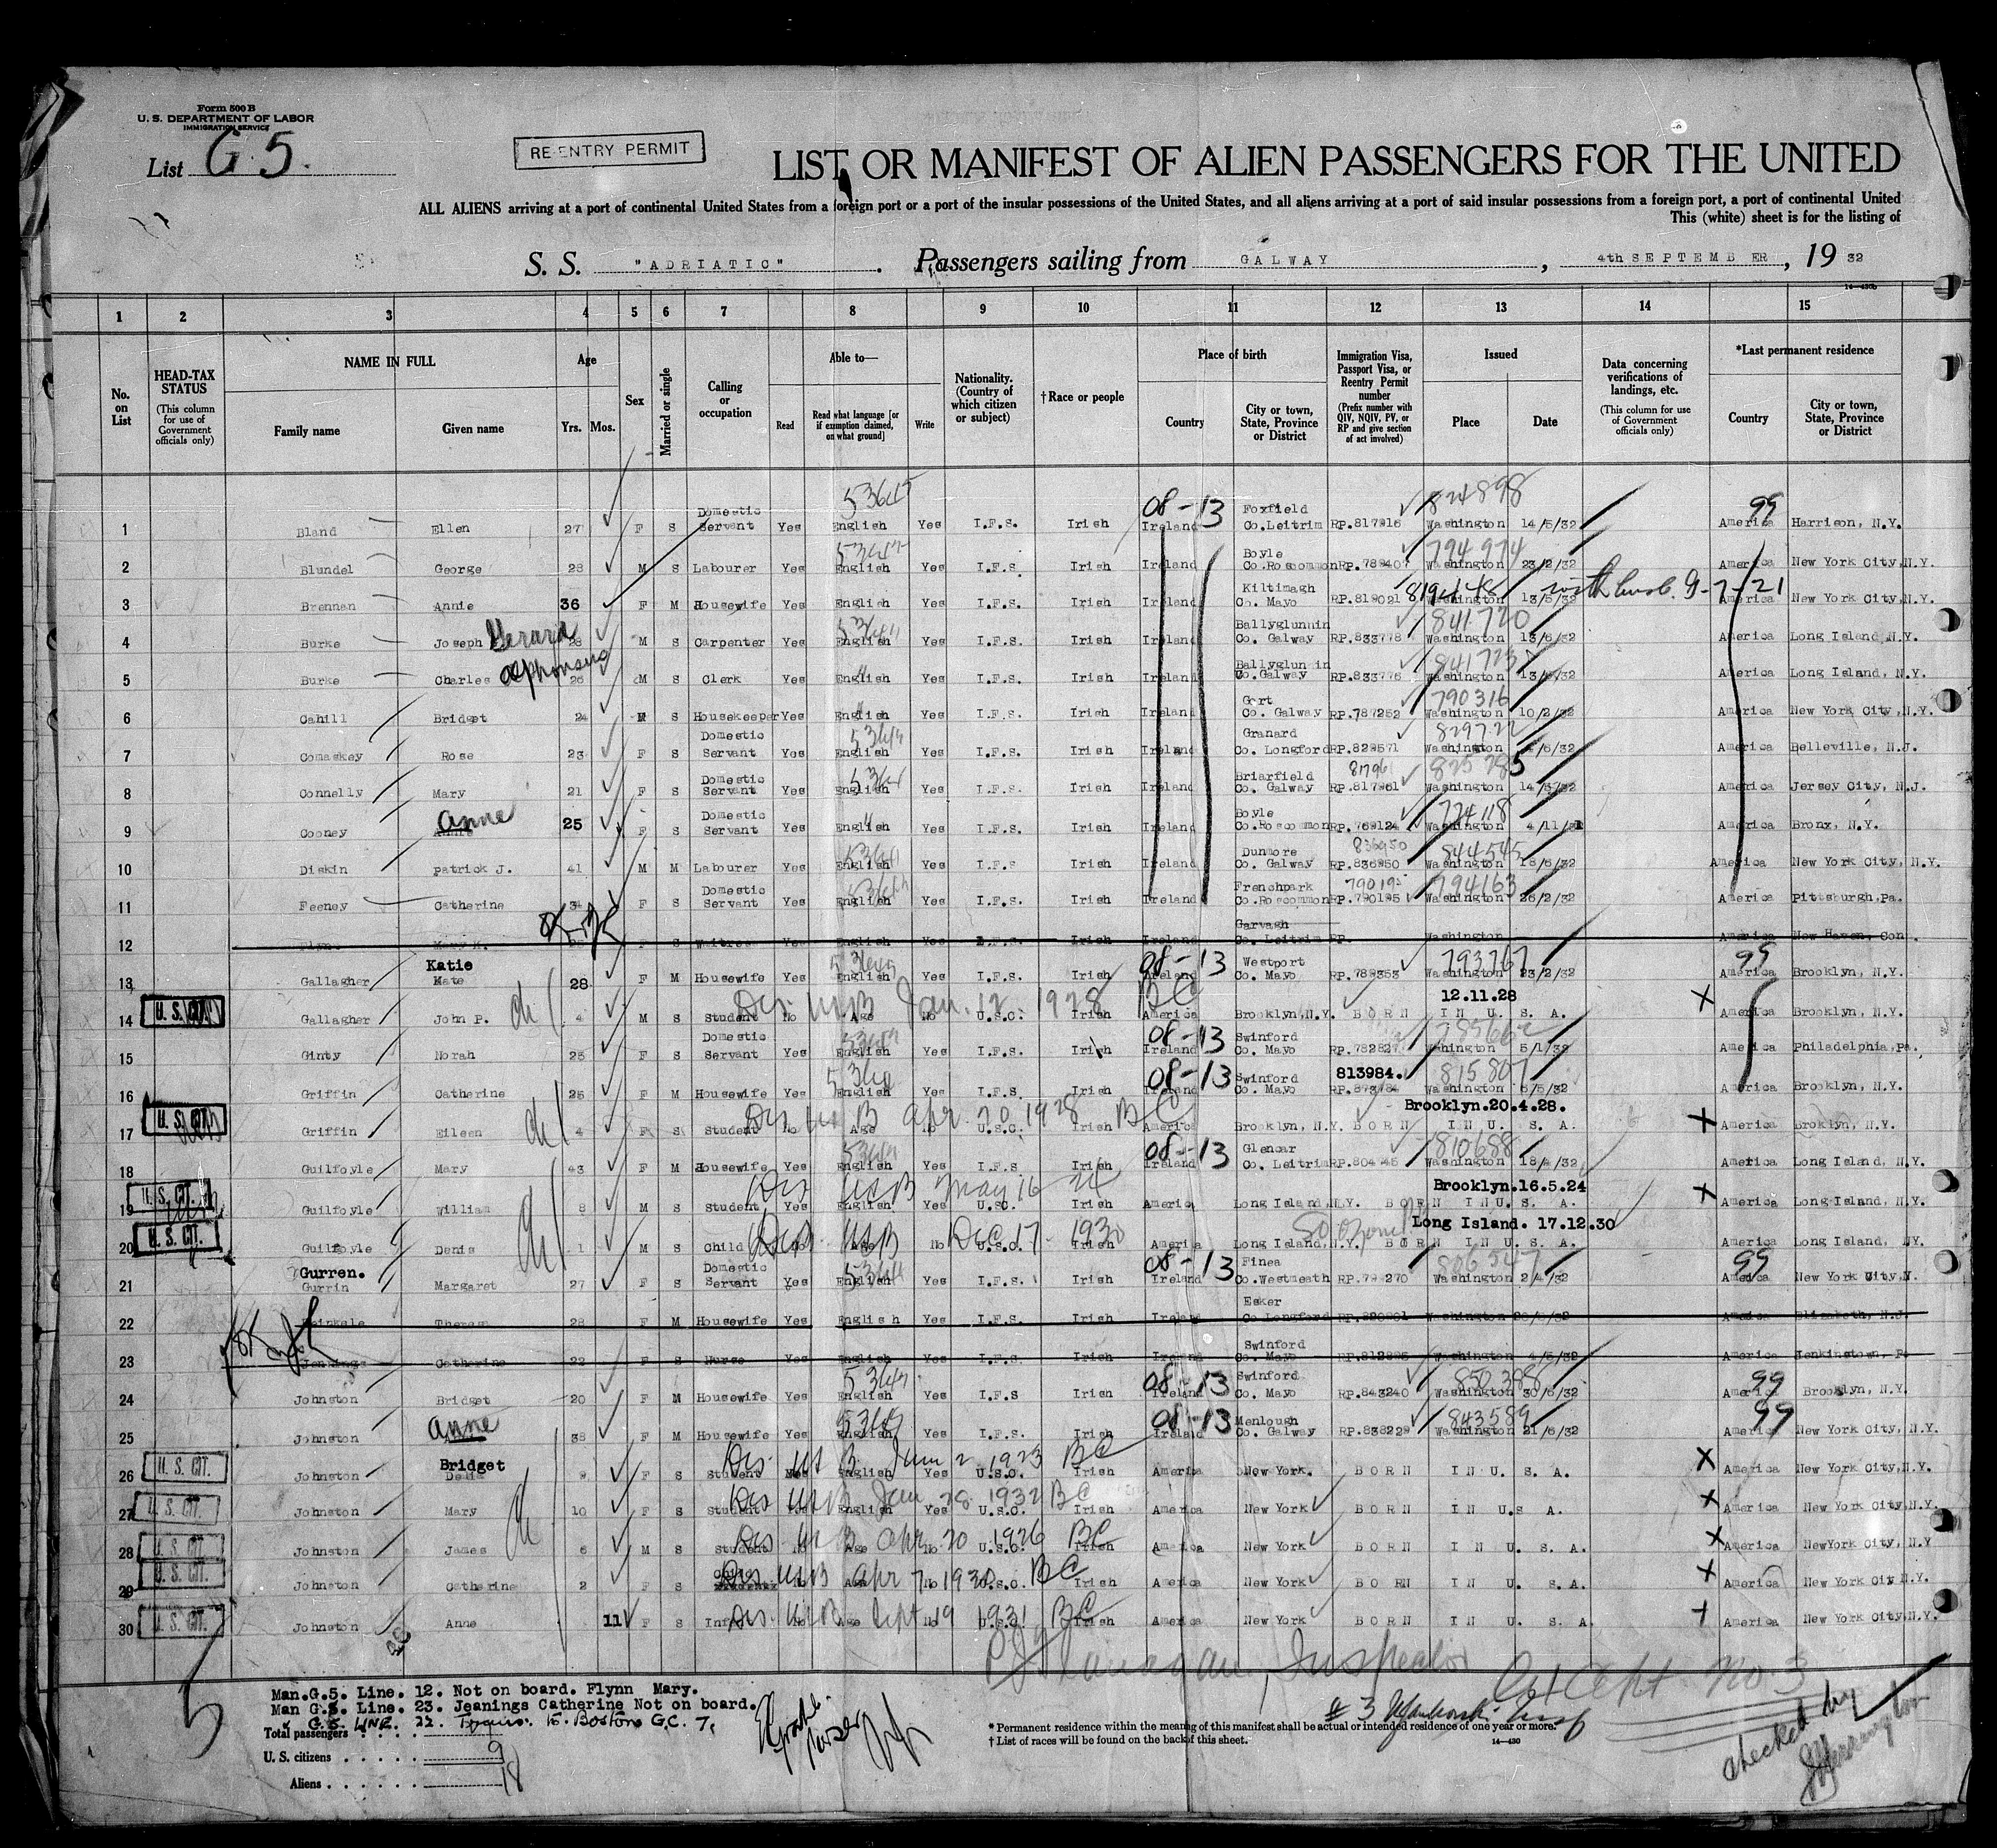 Form 500 B
U. S. DEPARTMENT OF LABOR
IMMIGRATION SERVICE
List G 5.
RE-ENTRY PERMIT
LIST OR MANIFEST OF ALIEN PASSENGERS FOR THE UNITED
ALL ALIENS arriving at a port of continental United States from a foreign port or a port of the insular possessions of the United States, and all aliens arriving at a port of said insular possessions from a foreign port, a port of continental United
This (white) sheet is for the listing of
S. S. "ADRIATIC" . Passengers sailing from GALWAY , 4th SEPTEMBER , 19 32
14—430b
1 2 3 4 5 6 7 8 9 10 11 12 13 14 15
No. on List
HEAD-TAX STATUS (This column for use of Government officials only)
NAME IN FULL
Family name Given name
Age Yrs. Mos.
Sex
Married or single
Calling or occupation
Able to—
Read Read what language [or if exemption claimed, on what ground] Write
Nationality. (Country of which citizen or subject)
†Race or people
Place of birth
Country City or town, State, Province or District
Immigration Visa, Passport Visa, or Reentry Permit number (Prefix number with QIV, NQIV, PV, or RP and give section of act involved)
Issued
Place Date
Data concerning verifications of landings, etc. (This column for use of Government officials only)
*Last permanent residence
Country City or town, State, Province or District
53645 08-13 824898 99
1 Bland Ellen 27 F S Domestic Servant Yes English Yes I.F.S. Irish Ireland Foxfield Co.Leitrim RP.817916 Washington 14/5/32 America Harrison, N.Y.
794974
2 Blundel George 28 M S Labourer Yes English Yes I.F.S. Irish Ireland Boyle Co.Roscommon RP.78940 Washington 23/2/32 America New York City,N.Y.
3 Brennan Annie 36 F M Housewife Yes English Yes I.F.S. Irish Ireland Kiltimagh Co. Mayo RP.819021 Washington 13/5/32 America New York City,N.Y.
841720
4 Burke Joseph Gerard 28 M S Carpenter Yes English Yes I.F.S. Irish Ireland Ballyglunnin Co. Galway RP.833778 Washington 13/6/32 America Long Island,N.Y.
5 Burke Charles Alphonsus 26 M S Clerk Yes English Yes I.F.S. Irish Ireland Ballyglunin Co.Galway RP.833776 Washington 13/6/32 America Long Island, N.Y.
790316
6 Cahill Bridget 24 M S Housekeeper Yes English Yes I.F.S. Irish Ireland Gort Co. Galway RP.787252 Washington 10/2/32 America New York City,N.Y.
7 Comaskey Rose 23 F S Domestic Servant Yes English Yes I.F.S. Irish Ireland Granard Co. Longford RP.829571 Washington /6/32 America Belleville, N.J.
81796 825785
8 Connelly Mary 21 F S Domestic Servant Yes English Yes I.F.S. Irish Ireland Briarfield Co. Galway RP.817961 Washington 14/5/32 America Jersey City, N.J.
774118
9 Cooney Anne 25 F S Domestic Servant Yes English Yes I.F.S. Irish Ireland Boyle Co.Roscommon RP.769124 Washington 4/11/31 America Bronx, N.Y.
836950 844545
10 Diskin Patrick J. 41 M M Labourer Yes English Yes I.F.S Irish Ireland Dunmore Co. Galway RP.836950 Washington 18/6/32 America New York City, N.Y.
790195 794163
11 Feeney Catherine 34 F S Domestic Servant Yes English Yes I.F.S. Irish Ireland Frenchpark Co.Roscommon RP.790195 Washington 26/2/32 America Pittsburgh,Pa.
12 Flynn Mary K. F S Waitress Yes English Yes I.F.S. Irish Ireland Garvagh Co. Leitrim RP. Washington America New Haven, Con.
08-13 793767 99
13 Gallagher Katie Kate 28 F M Housewife Yes English Yes I.F.S. Irish Ireland Westport Co. Mayo RP.789353 Washington 23/2/32 America Brooklyn, N.Y.
Jan. 12. 1928 BC 12.11.28
14 U. S. CIT. Gallagher John P. 4 M S Student No Age No U.S.C. Irish America Brooklyn,N.Y. BORN IN U. S. A. X America Brooklyn, N.Y.
08-13
15 Ginty Norah 25 F S Domestic Servant Yes English Yes I.F.S. Irish Ireland Swinford Co. Mayo RP.782827 Wahington 5/1/32 America Philadelphia,Pa.
08-13 813984. 815807
16 Griffin Catherine 25 F M Housewife Yes English Yes I.F.S. Irish Ireland Swinford Co. Mayo Washington 6/5/32 America Brooklyn, N.Y.
Apr. 20 1928 BC Brooklyn.20.4.28.
17 U. S. CIT. Griffin Eileen 4 F S Student No Age No U.S.C. Irish America Brooklyn, N.Y. BORN IN U. S. A. X America Broklyn, N.Y.
08-13 810688
18 Guilfoyle Mary 43 F M Housewife Yes English Yes I.F.S Irish Ireland Glencar Co. Leitrim RP.80445 Washington 18/4/32 America Long Island, N.Y.
May 16 24 Brooklyn.16.5.24
19 U. S. CIT. Guilfoyle William 8 M S Student Yes English Yes U.S.C. Irish America Long Island,N.Y. BORN IN U. S. A. X America Long Island, N.Y.
Dec 17 1930 Long Island. 17.12.30
20 U. S. CIT. Guilfoyle Denis 1 M S Child No Age No U.S.C. Irish America Long Island,N.Y. BORN IN U. S. A. America Long Island, NY.
08-13 806547 99
21 Gurren. Gurrin Margaret 27 F S Domestic Servant Yes English Yes I.F.S. Irish Ireland Finea Co.Westmeath RP.799270 Washington 2/4/32 America New York City,N.
22 Theresa 28 F M Housewife Yes English Yes I.F.S. Irish Ireland Esker Co Longford Washington America Elizabeth, N.J.
23 Jennings Catherine 22 F S Nurse Yes English Yes I.F.S. Irish Ireland Swinford Co. Mayo RP.812895 Washington 4/5/32 America Jenkinstown, P
08-13 850388 99
24 Johnston Bridget 20 F M Housewife Yes English Yes I.F.S Irish Ireland Swinford Co. Mayo RP.843240 Washington 30/6/32 America Brooklyn, N.Y.
08-13 843589 99
25 Johnston Anne 38 F M Housewife Yes English Yes I.F.S. Irish Ireland Menlough Co. Galway RP.838229 Washington 21/6/32 America New York City,N.Y.
1923 BC
26 U. S. CIT. Johnston Bridget Delia 9 F S Student Yes English Yes U.S.C. Irish America New York. BORN IN U. S. A. X America New York City,N.Y.
28 1932 BC
27 U. S. CIT. Johnston Mary 10 F S Student Yes English Yes U.S.C. Irish America New York BORN IN U.S A. X America New York City,N.Y.
Apr 20 1926 BC
28 U. S. CIT. Johnston James 6 M S Student Age No U.S.C. Irish America New York BORN IN U. S. A. X America NewYork City, N.Y
Apr 7 1930 BC
29 U. S. CIT. Johnston Catherine 2 F S Child No Age No U.S.C. Irish America New York BORN IN U. S.A. X America New York City N.Y.
Sept 19 1931 BC
30 U. S. CIT. Johnston Anne 11 F S Inf No Age No U.S.C. Irish America New York BORN IN U. S. A. America New York City,N.Y.
Inspector
Man.G.5. Line. 12. Not on board. Flynn Mary.
Man G.5. Line. 23. Jeanings Catherine Not on board.
G.5. LINE. 22. Trans. to Boston G.C. 7.
Total passengers
U. S. citizens 9
Aliens 18
* Permanent residence within the meaning of this manifest shall be actual or intended residence of one year or more.
† List of races will be found on the back of this sheet.
14—430
Except No. 3
checked by